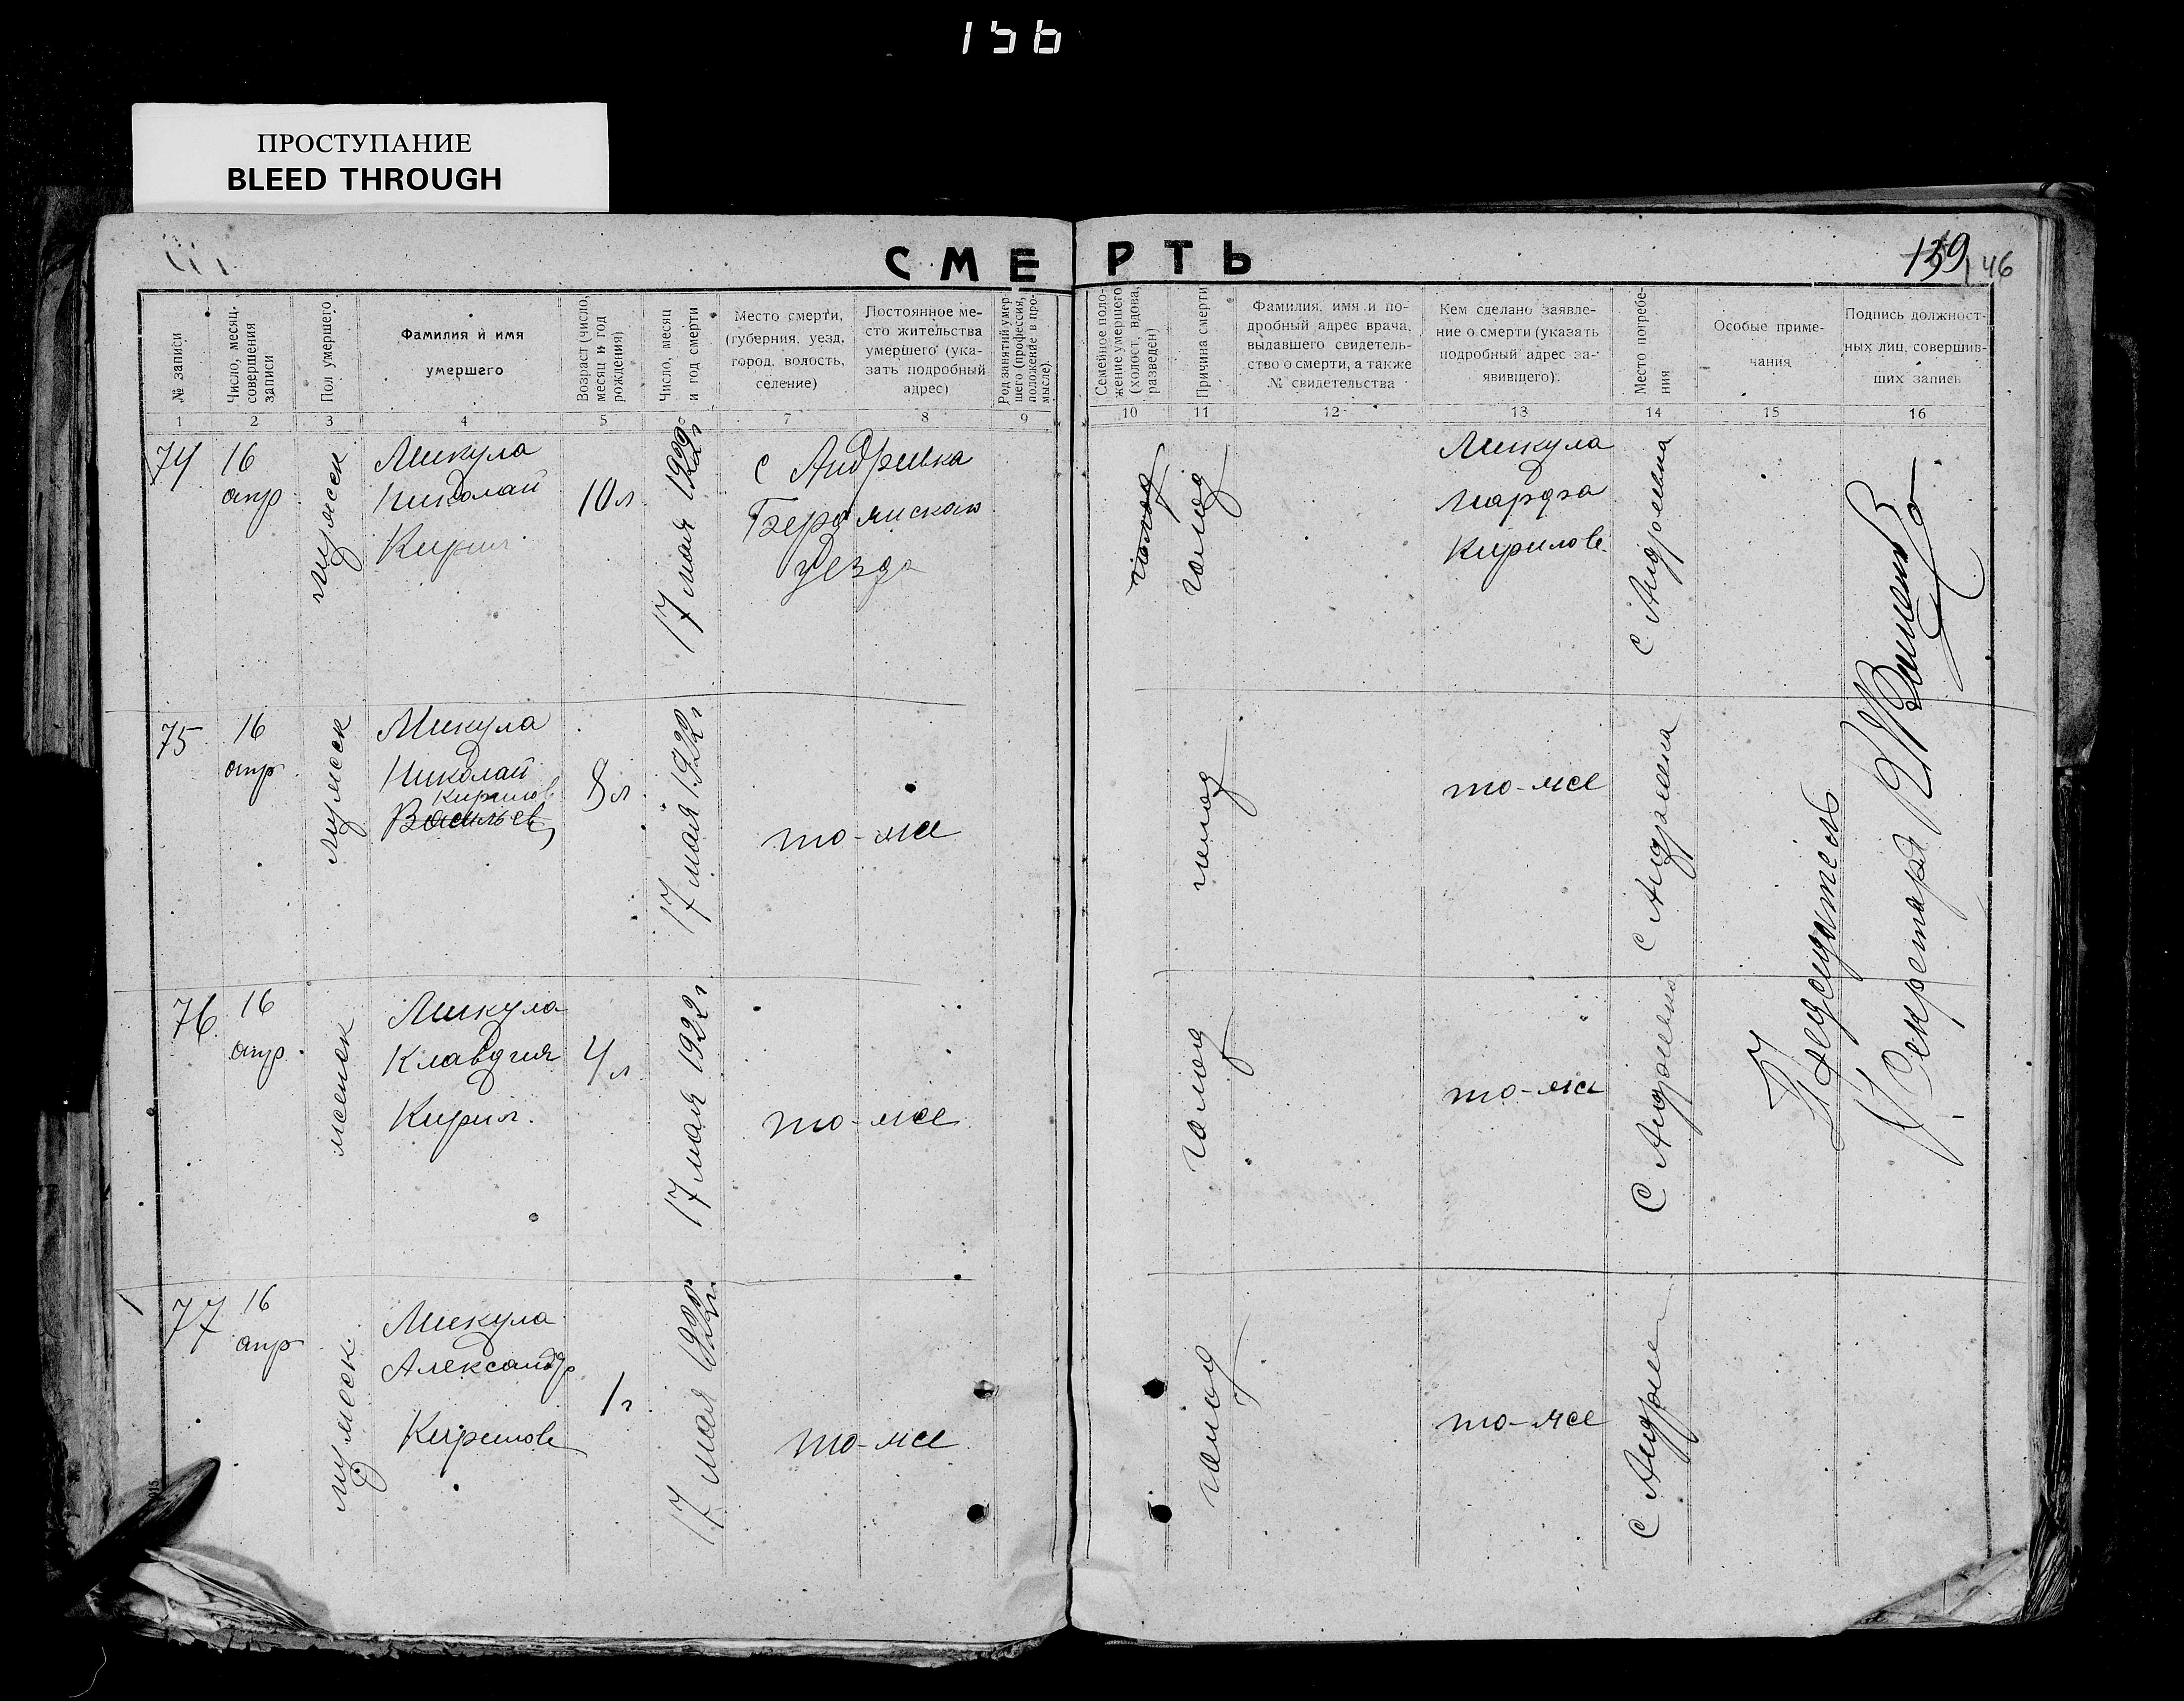 156
ПРОСТУПАНИЕ
BLEED THROUGH
СМЕРТЬ
159 146
№ записи
Число, месяц совершения записи
Пол умершего
Фамилия и имя умершего
Возраст (число, месяц и год рождения)
Число, месяц и год смерти
Место смерти, (губерния, уезд, город, волость, селение)
Постоянное место жительства умершего (указать подробный адрес)
Род занятий умершего (профессия, положение в промысле)
Семейное положение умершего (холост, вдова, разведен)
Причина смерти
Фамилия, имя и подробный адрес врача, выдавшего свидетельство о смерти, а также № свидетельства
Кем сделано заявление о смерти (указать подробный адрес заявившего).
Место погребения
Особые примечания
Подпись должностных лиц, совершивших запись
1 2 3 4 5 6 7 8 9 10 11 12 13 14 15 16
74
16
апр
мужеск
Микула
Николай
Кирил
10 л
17 мая 1922 г
с Андриевка
Бердянскаго
уезда
голод
голод
Микула
Марфа
Кирилов.
с Андреевка
75
16
апр.
мужеск
Микула
Николай
Кирилов
Васильев
8 л
17 мая 1922 г
то-же
голод
то-же
с Андреевка
76
16
апр.
женск
Микула
Клавдия
Кирил.
4 л
17 мая 1922 г
то-же
голод
то-же
с Андреевка
77
16
апр
мужеск
Микула
Александр
Кирилов
1 г
17 мая 1922 г
то-же
голод
то-же
с Андрее
Председатель
Секретарь